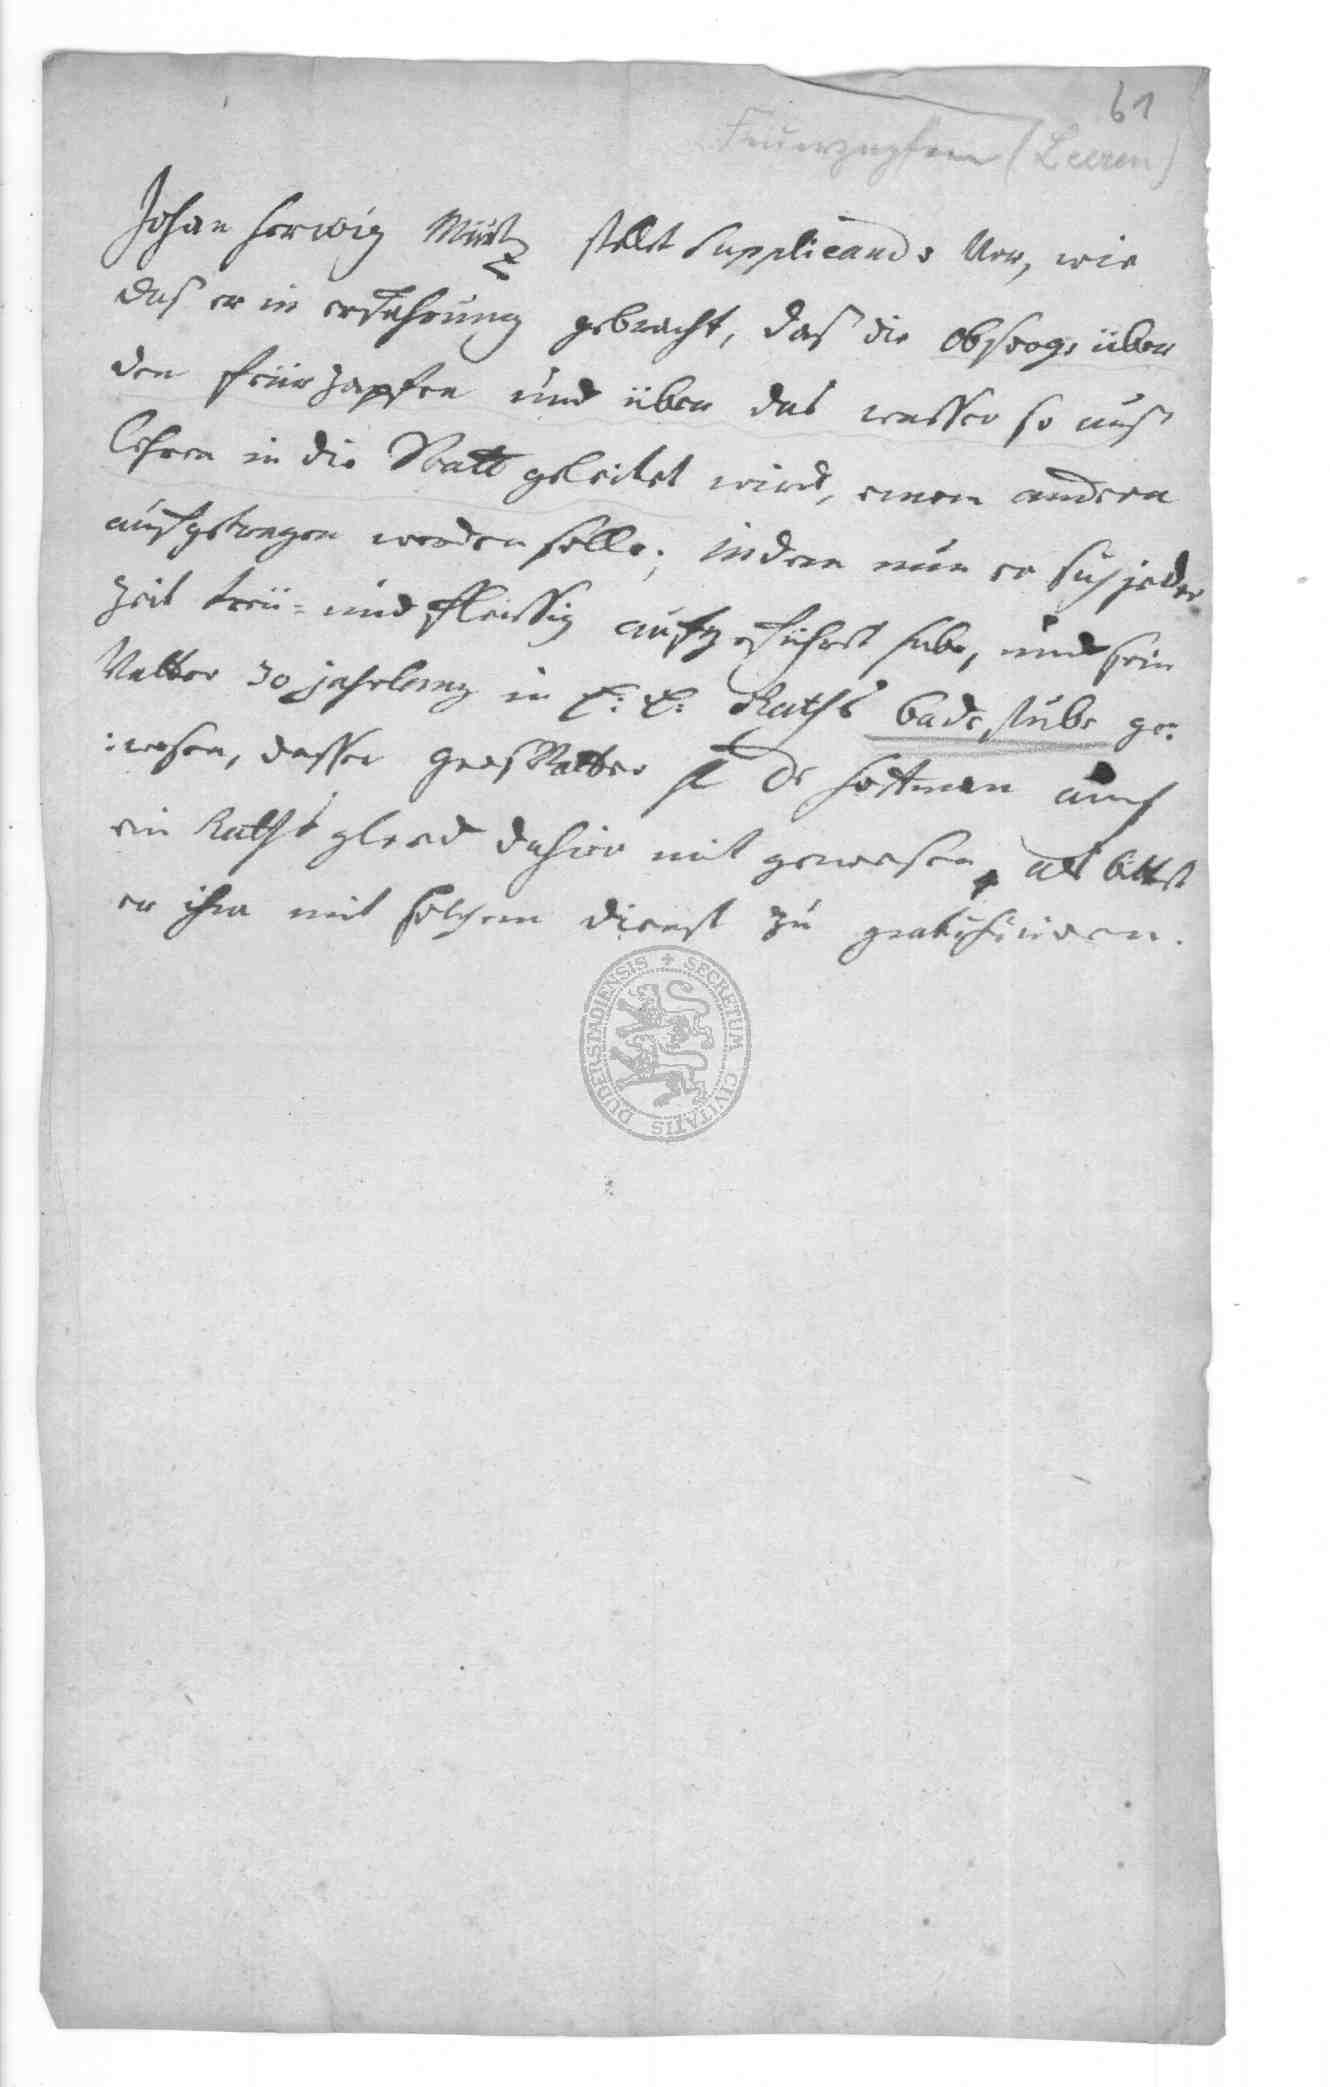 61
Feuerzapfen (Leeren)
Johan Herwig stellet Supplicando Vor, wie
daß er in erfahrung gebracht, daß die obsorge über
den feürzapfen und über das wasser so auß
lehren in die Statt geleitet wird, einem andern
aufgetragen werden solle; indem nun er sich jeder
zeit treü- und fleissig aufgeführet habe, und sein
Vatter 30 jahrlang in E: E: Raths badestube ge-
wesen, dessen GrosVatter auch
ein Raths glied dahier mit gewesen, als bittet
er ihm mit solchem dienst zu gratificiren.
SECRETUM CIVITATIS DUDERSTADIENSIS